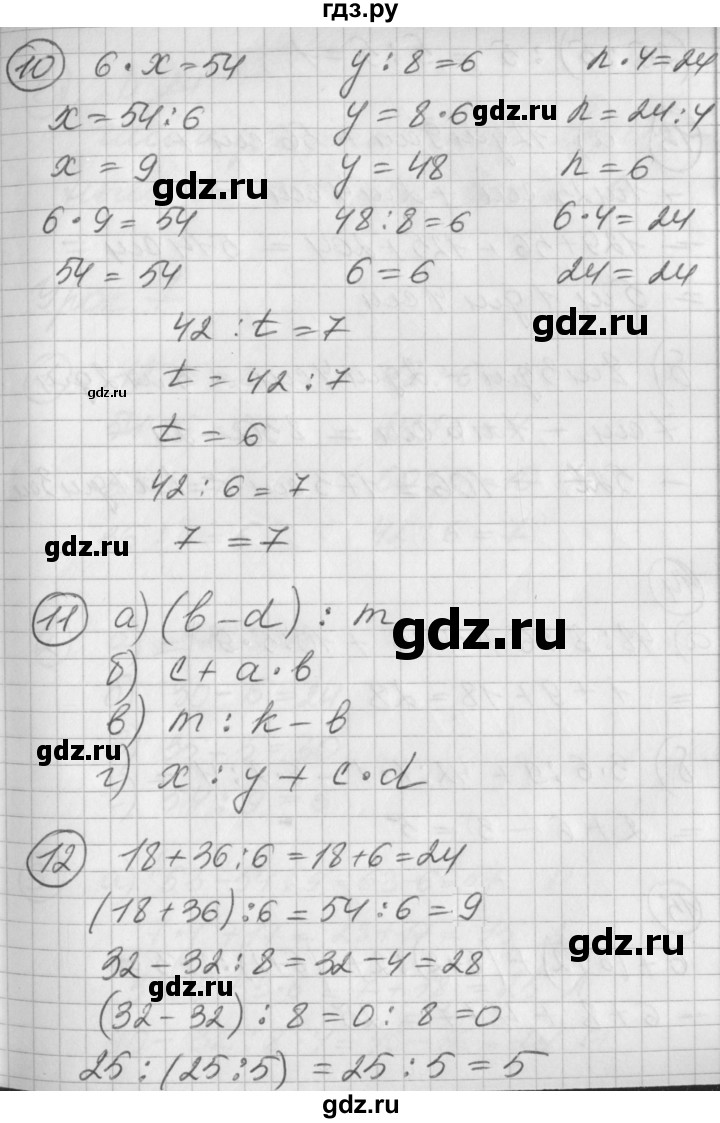 гдз.ру
10 6 · x = 54 y : 8 = 6 n · 4 = 24
x = 54 : 6 y = 8 · 6 n = 24 : 4
gdz.ru
x = 9 y = 48 n = 6
gdz.ru
6 · 9 = 54 48 : 8 = 6 6 · 4 = 24
54 = 54 6 = 6 24 = 24
42 : t = 7
gdz.ru
t = 42 : 7
gdz.ru
t = 6
42 : 6 = 7
7 = 7
gdz.ru
11 а) (b - d) : m
gdz.ru
б) c + a · b
в) m : k - b
gdz.ru
г) x : y + c · d
12 18 + 36 : 6 = 18 + 6 = 24
(18 + 36) : 6 = 54 : 6 = 9
gdz.ru
32 - 32 : 8 = 32 - 4 = 28
gdz.ru
(32 - 32) : 8 = 0 : 8 = 0
25 : (25 : 5) = 25 : 5 = 5
gdz.ru